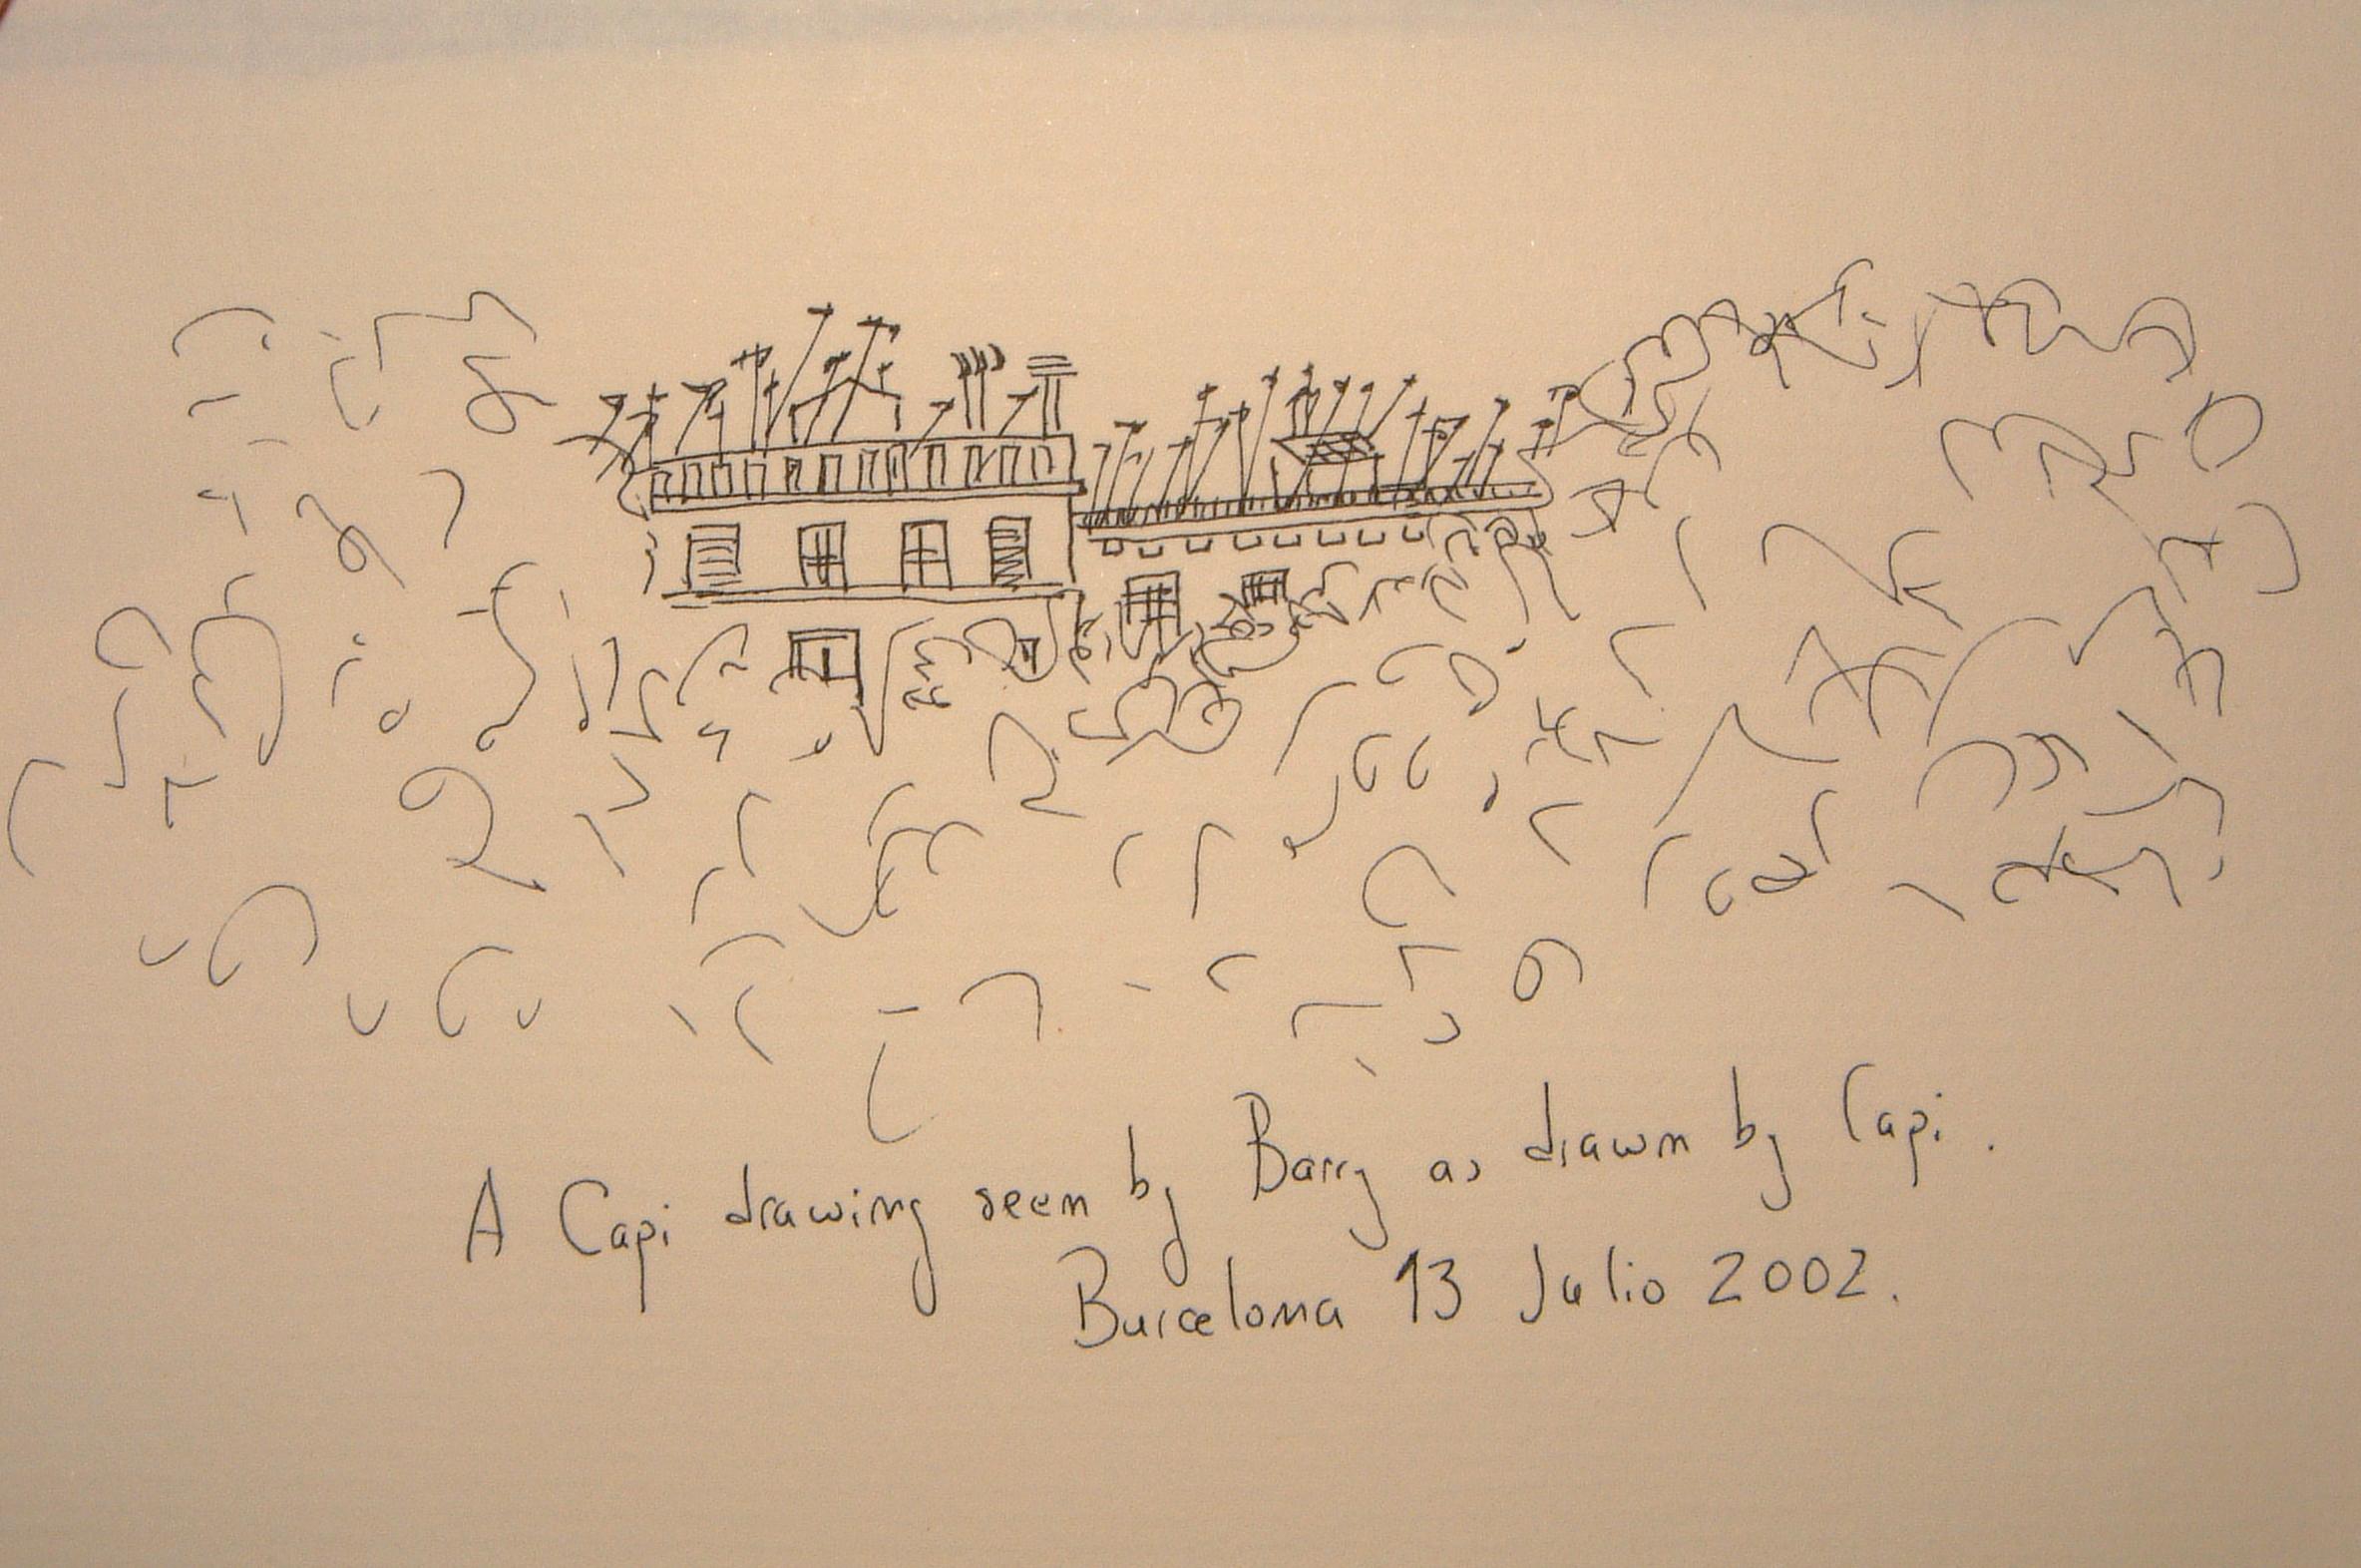 A Capi drawing seen by Barry as drawn by Capi.
Barcelona 13 Julio 2002.